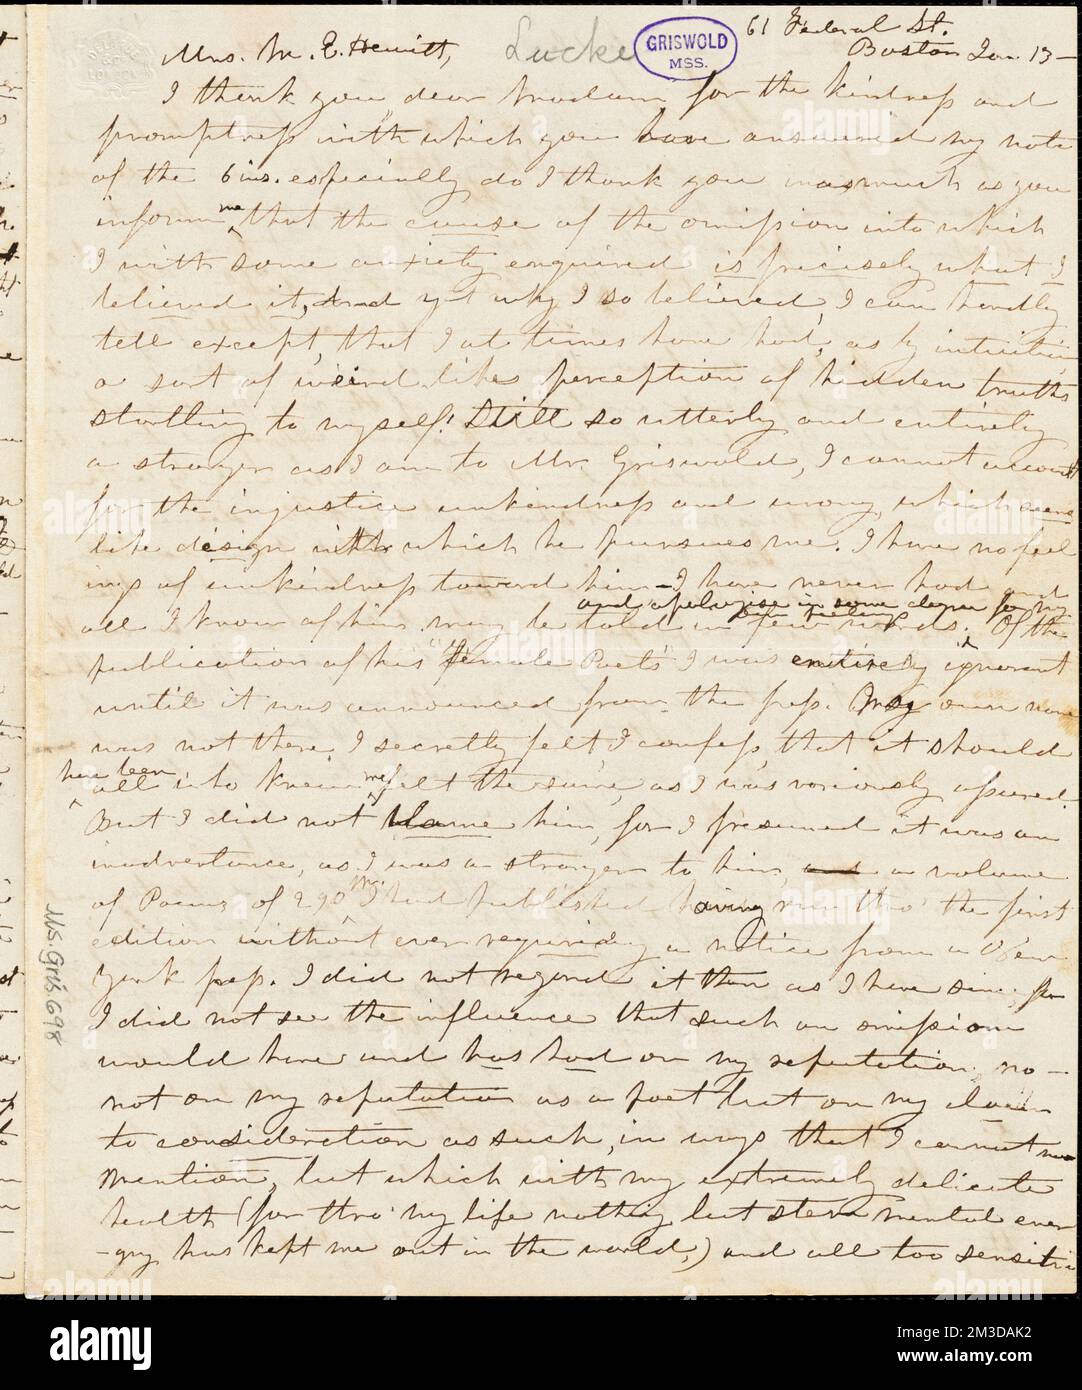 61 Federal St.
Boston Jan. 13 -
Mrs. M. E. Hewitt,
Locke
GRISWOLD
MSS.
I thank you dear Madam for the kindness and
promptness with which you have answered my note
of the 6 ins. especially do I thank you inasmuch as you
inform me that the cause of the omission into which
I with some anxiety enquired is precisely what I
believed it, And yet why I so believed, I can hardly
tell except, that I at times have had, as by intuition
a sort of weird like perception of hidden truths
startling to myself! Still so utterly and entirely
a stranger as I am to Mr. Griswold, I cannot account
for the injustice unkindness and wrong, which seems
like design with which he pursues me. I have no feel
ings of unkindness toward him - I have never had and
and apologise in some degree for my
all I know of him may be told in few words. Of the
publication of his "female Poets" I was entirely ignorant
until it was announced from the press. My own name
was not there, I secretly felt, I confess, that it should
have been
all who knew me felt the same, as I was variously assured.
But I did not blame him, for I presumed it was an
inadvertance, as I was a stranger to him, and a volume
of Poems of 290 I had published having run thro' the first
edition without ever requiring a notice from a New
York press. I did not regard it then as I have since, for
I did not see the influence that such an omission
would have and has had on my reputation, no -
not on my reputation as a poet but on my claim
to consideration as such, in ways that I cannot now
mention, but which with my extremely delicate
health (for thro' my life nothing but stern mental ener
-gy has kept me out in the world,) and all too sensitive
Ms. Gris 698
alamy
Image ID: 2M3DAK2
www.alamy.com